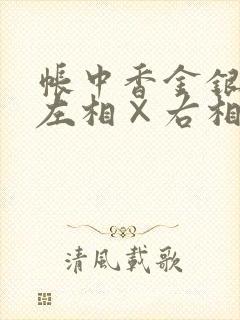 帳中香金銀
左相×右相
清風載歌